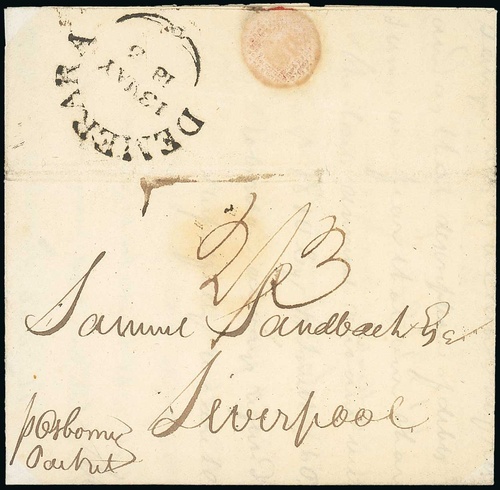 DEMERARA
13 MAY
18 
2/3
Samuel Sandbach Esqr
Liverpool
p Osborne
Packet